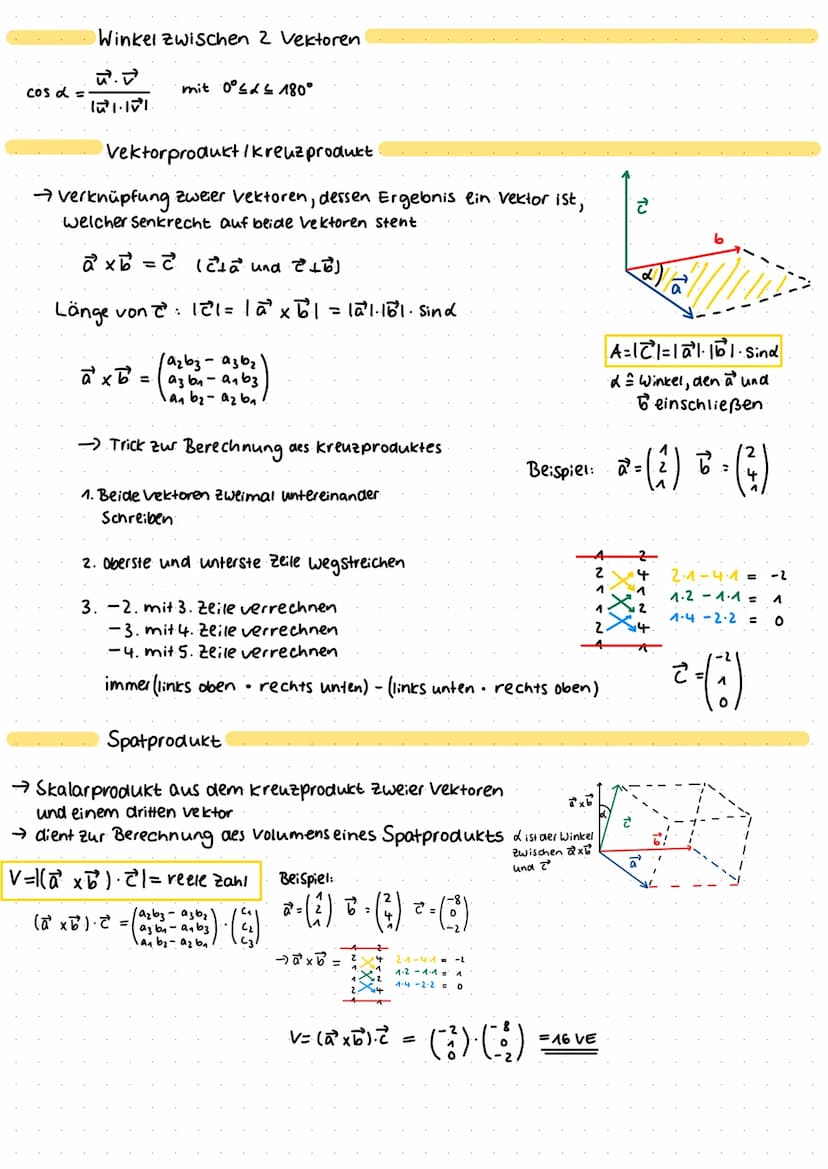 Winkel zwischen 2 Vektoren
cos α = u⃗ · v⃗ / |u⃗| · |v⃗| mit 0° ≤ α ≤ 180°
Vektorprodukt / Kreuzprodukt
→ Verknüpfung zweier Vektoren, dessen Ergebnis ein Vektor ist,
welcher senkrecht auf beide Vektoren steht
a⃗ × b⃗ = c⃗ (c⃗ ⊥ a⃗ und c⃗ ⊥ b⃗)
Länge von c⃗ : |c⃗| = | a⃗ × b⃗ | = |a⃗| · |b⃗| · sin α
a⃗ × b⃗ = (a₂b₃ - a₃b₂
a₃b₁ - a₁b₃
a₁b₂ - a₂b₁)
c⃗
b
α
a⃗
A = |c⃗| = |a⃗| · |b⃗| · sin α
α ≙ Winkel, den a⃗ und
b⃗ einschließen
→ Trick zur Berechnung des Kreuzproduktes
1. Beide Vektoren zweimal untereinander
schreiben
2. oberste und unterste Zeile wegstreichen
3. - 2. mit 3. Zeile verrechnen
- 3. mit 4. Zeile verrechnen
- 4. mit 5. Zeile verrechnen
immer (links oben · rechts unten) - (links unten · rechts oben)
Beispiel: a⃗ = (1 2 1) b⃗ = (2 4 1)
1 2
2 4 2·1 - 4·1 = -2
1 1 1·2 - 1·1 = 1
1 2 1·4 - 2·2 = 0
2 4
1 1
c⃗ = (-2 1 0)
Spatprodukt
→ Skalarprodukt aus dem Kreuzprodukt zweier Vektoren
und einem dritten Vektor
→ dient zur Berechnung des Volumens eines Spatprodukts
α ist der Winkel
zwischen a⃗ × b⃗
und c⃗
a⃗ × b⃗
α
c⃗
b⃗
a⃗
V = |(a⃗ × b⃗) · c⃗| = reele Zahl
(a⃗ × b⃗) · c⃗ = (a₂b₃ - a₃b₂
a₃b₁ - a₁b₃
a₁b₂ - a₂b₁) · (c₁ c₂ c₃)
Beispiel:
a⃗ = (1 2 1) b⃗ = (2 4 1) c⃗ = (-8 0 -2)
→ a⃗ × b⃗ =
1 2
2 4 2·1 - 4·1 = -2
1 1 1·2 - 1·1 = 1
1 2 1·4 - 2·2 = 0
2 4
1 1
V = (a⃗ × b⃗) · c⃗ = (-2 1 0) · (-8 0 -2) = 16 VE